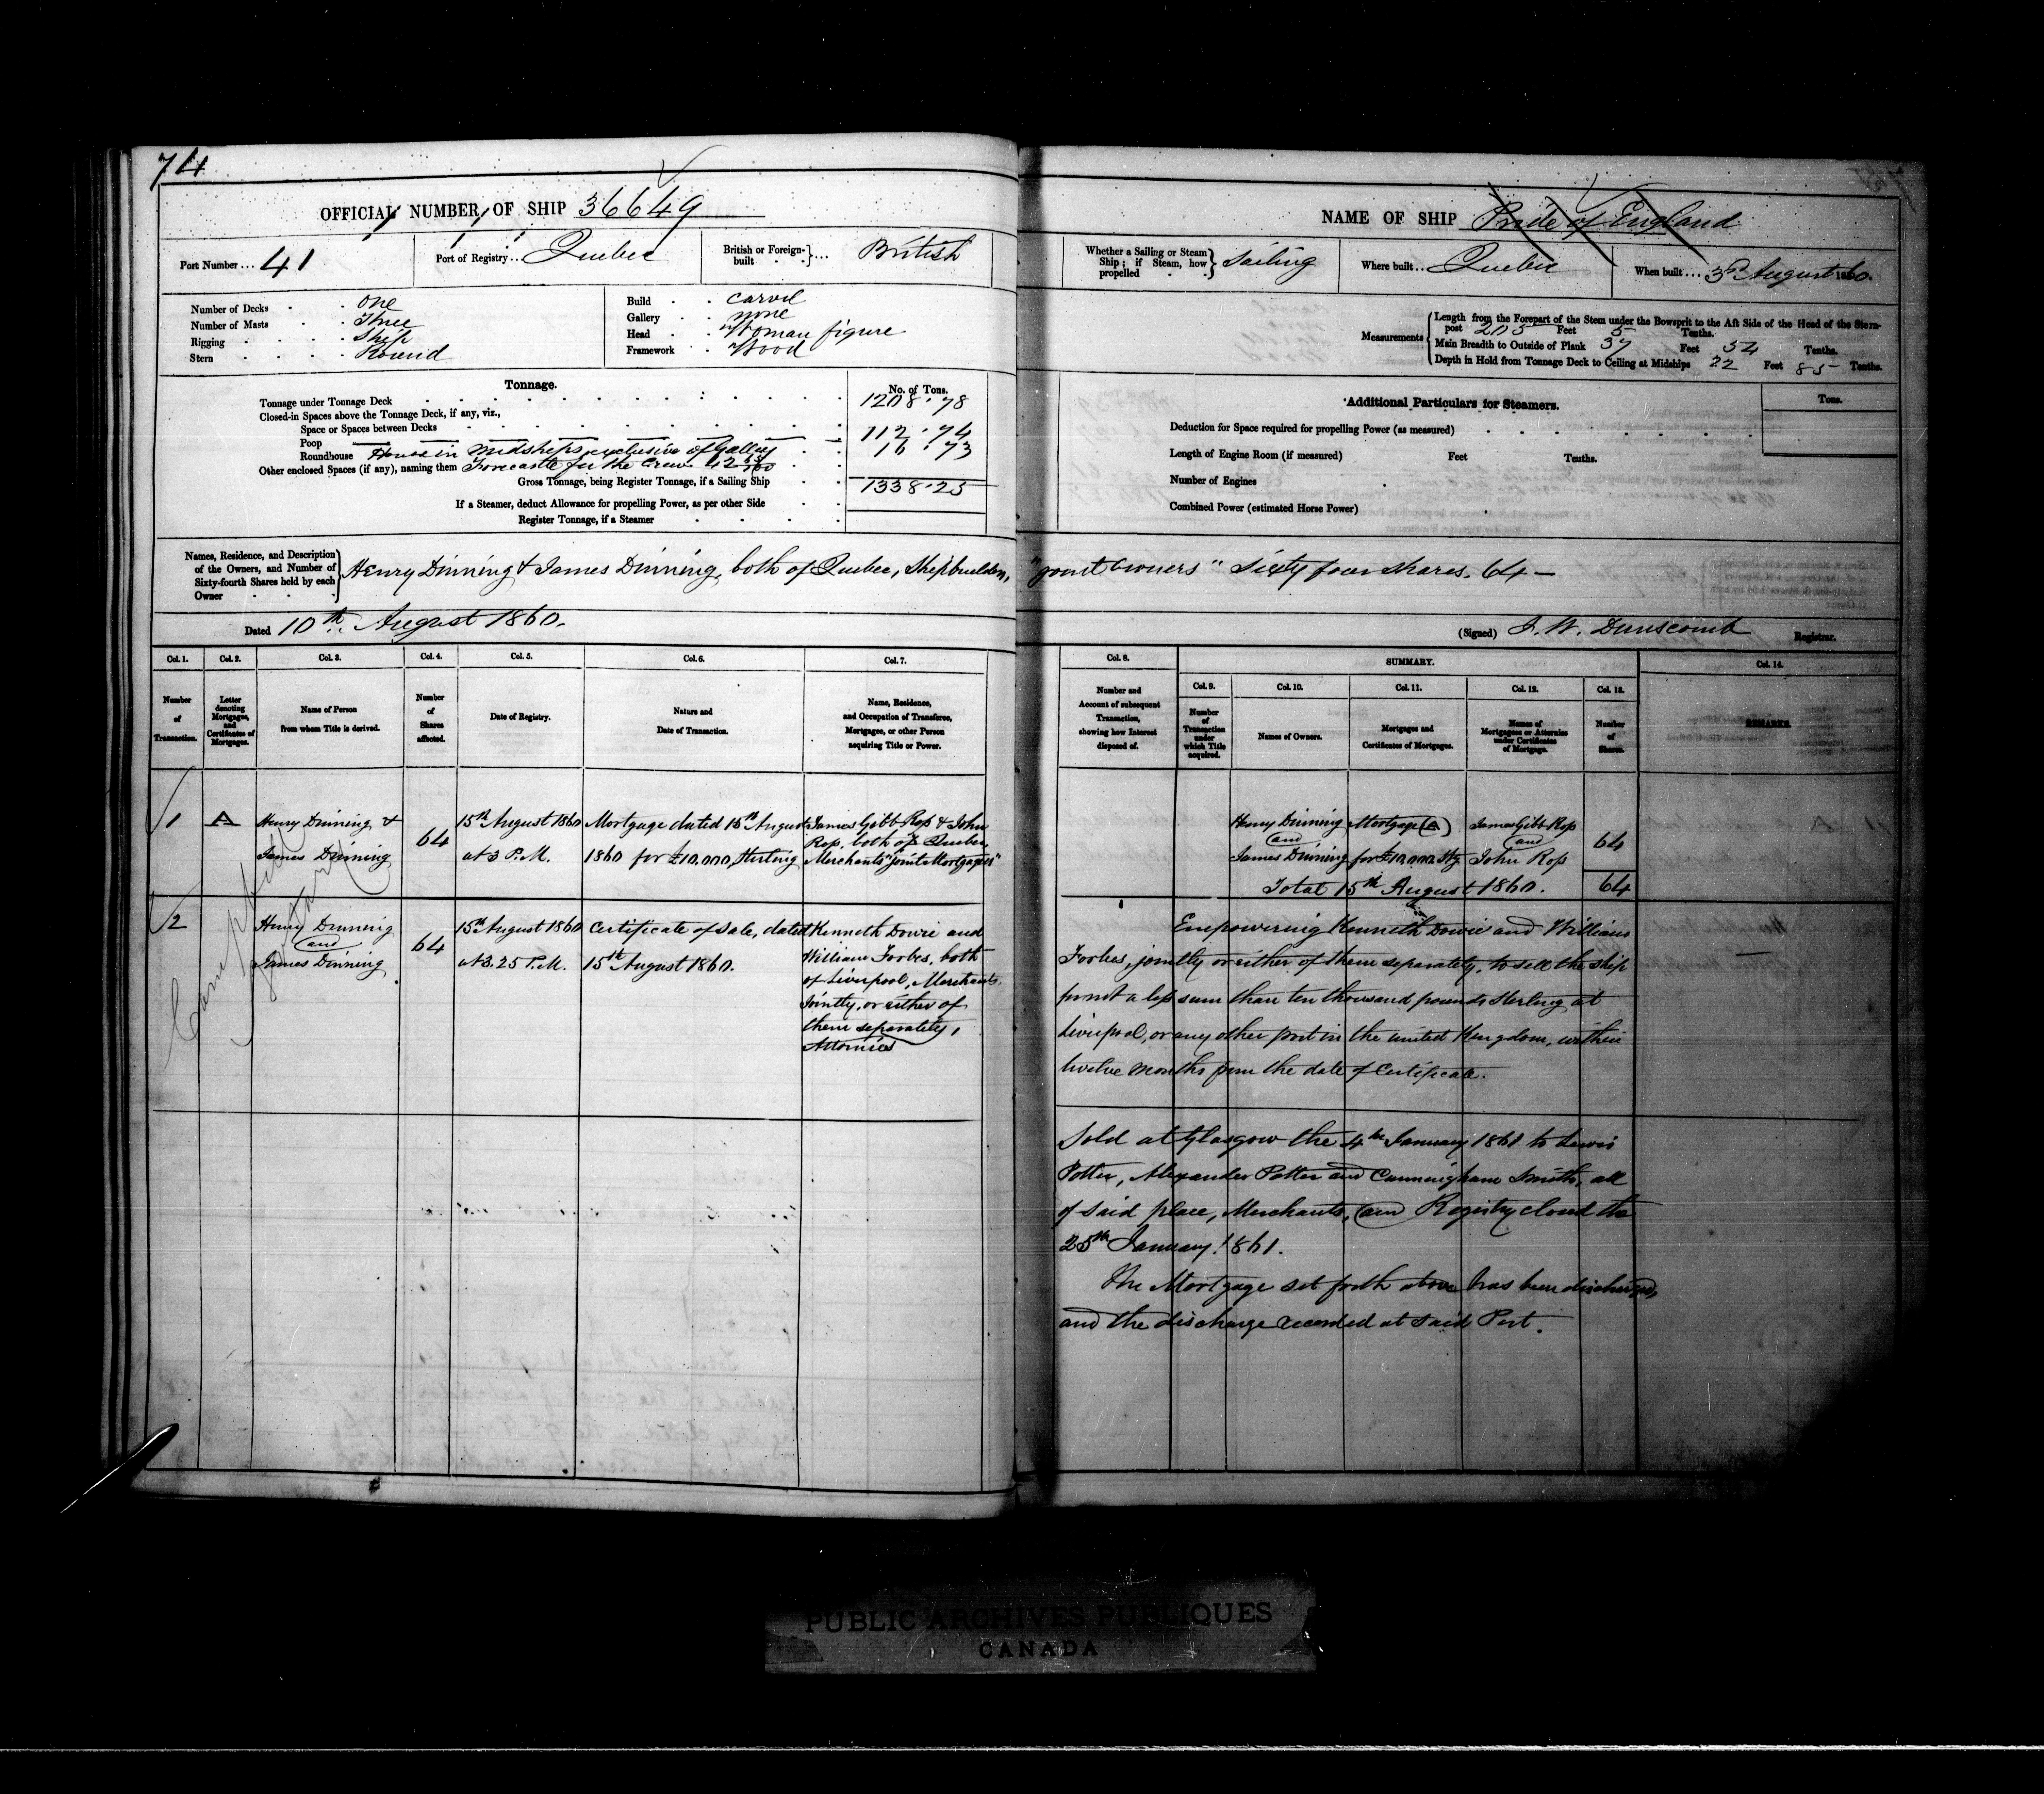 74
OFFICIAL NUMBER OF SHIP 36649
Port Number ... 41
Port of Registry ... Quebec
British or Foreign-built ... British
Number of Decks One
Number of Masts Three
Rigging Ship
Stern Round
Build Carvel
Gallery none
Head Woman figure
Framework Wood
Tonnage.
No. of Tons.
Tonnage under Tonnage Deck 1208.78
Closed-in Spaces above the Tonnage Deck, if any, viz.,
Space or Spaces between Decks
Poop 112.74
Roundhouse House in Midships exclusive of Galley 16.73
Other enclosed Spaces (if any), naming them Forecastle for the Crew
Gross Tonnage, being Register Tonnage, if a Sailing Ship 1338.25
If a Steamer, deduct Allowance for propelling Power, as per other Side
Register Tonnage, if a Steamer
Names, Residence, and Description of the Owners, and Number of Sixty-fourth Shares held by each Owner
Henry Dinning & James Dinning, both of Quebec, Shipbuilders,
Dated 10th August 1860.
Col. 1. Col. 2. Col. 3. Col. 4. Col. 5. Col. 6. Col. 7.
Number of Transaction.
Letter denoting Mortgages, and Certificates of Mortgages.
Name of Person from whom Title is derived.
Number of Shares affected.
Date of Registry.
Nature and Date of Transaction.
Name, Residence, and Occupation of Transferee, Mortgagee, or other Person acquiring Title or Power.
1 A
Henry Dinning &
James Dinning
64
15th August 1860
at 3 P.M.
Mortgage dated 15th August
1860 for £10,000, Sterling
James Gibb Ross & John
Ross, both of Quebec,
Merchants "joint Mortgagees"
2
Henry Dinning
and
James Dinning
64
15th August 1860
at 3.25 P.M.
Certificate of Sale, dated
15th August 1860.
Kenneth Dowie and
William Forbes, both
of Liverpool, Merchants,
Jointly, or either of
them separately,
Attornies
NAME OF SHIP Pride of England
Whether a Sailing or Steam Ship; if Steam, how propelled Sailing
Where built ... Quebec
When built ... 3d August 1860.
Measurements
Length from the Forepart of the Stem under the Bowsprit to the Aft Side of the Head of the Stern-
post 205 Feet 5 Tenths.
Main Breadth to Outside of Plank 37 Feet 54 Tenths.
Depth in Hold from Tonnage Deck to Ceiling at Midships 22 Feet 85 Tenths.
Additional Particulars for Steamers.
Tons.
Deduction for Space required for propelling Power (as measured)
Length of Engine Room (if measured) Feet Tenths.
Number of Engines
Combined Power (estimated Horse Power)
"joint owners" Sixty four shares. 64 —
(Signed) J. W. Dunscomb Registrar.
Col. 8.
SUMMARY.
Col. 14.
Col. 9. Col. 10. Col. 11. Col. 12. Col. 13.
Number and Account of subsequent Transaction, showing how Interest disposed of.
Number of Transaction under which Title acquired.
Names of Owners.
Mortgages and Certificates of Mortgages.
Names of Mortgagees or Attornies under Certificates of Mortgage.
Number of Shares.
REMARKS.
Henry Dinning
and
James Dinning
Mortgage (A)
for £10,000 Stg
James Gibb Ross
and
John Ross
64
Total 15th August 1860. 64
Empowering Kenneth Dowie and William
Forbes, jointly or either of them separately, to sell the ship
for not a less sum than ten thousand pounds Sterling at
Liverpool, or any other port in the united Kingdom, within
twelve months from the date of Certificate.
Sold at Glasgow the 4th January 1861 to Lewis
Potter, Alexander Potter and Cunningham Smith, all
of said place, Merchants, and Registry closed the
25th January 1861.
The Mortgage set forth above has been discharged,
and the discharge recorded at said Port.
PUBLIC ARCHIVES PUBLIQUES
CANADA